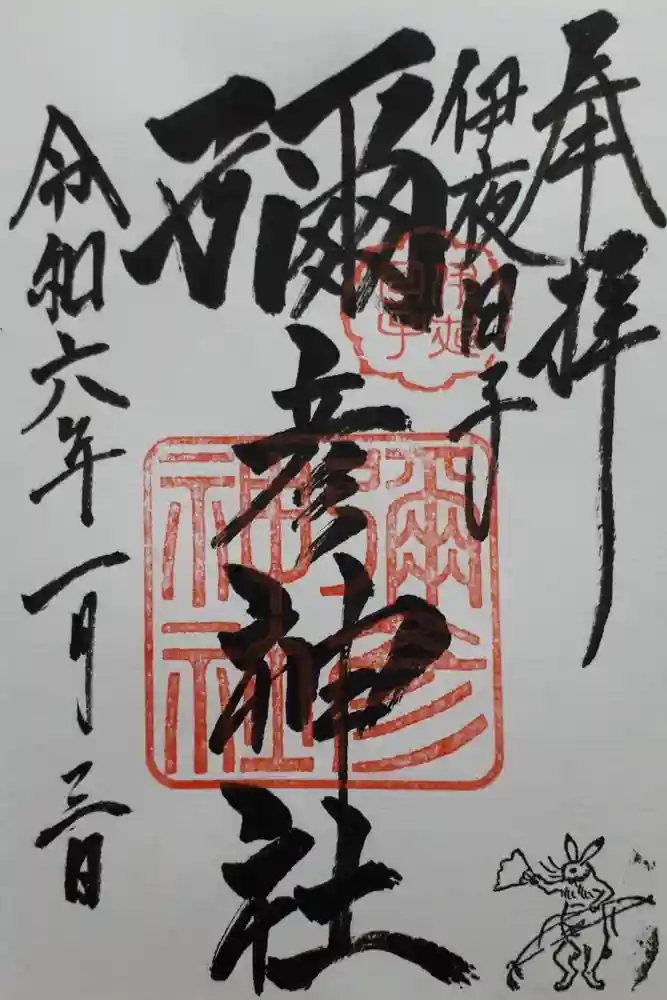 奉拝
伊夜日子
彌彦神社
彌彦神社
令和六年一月三日